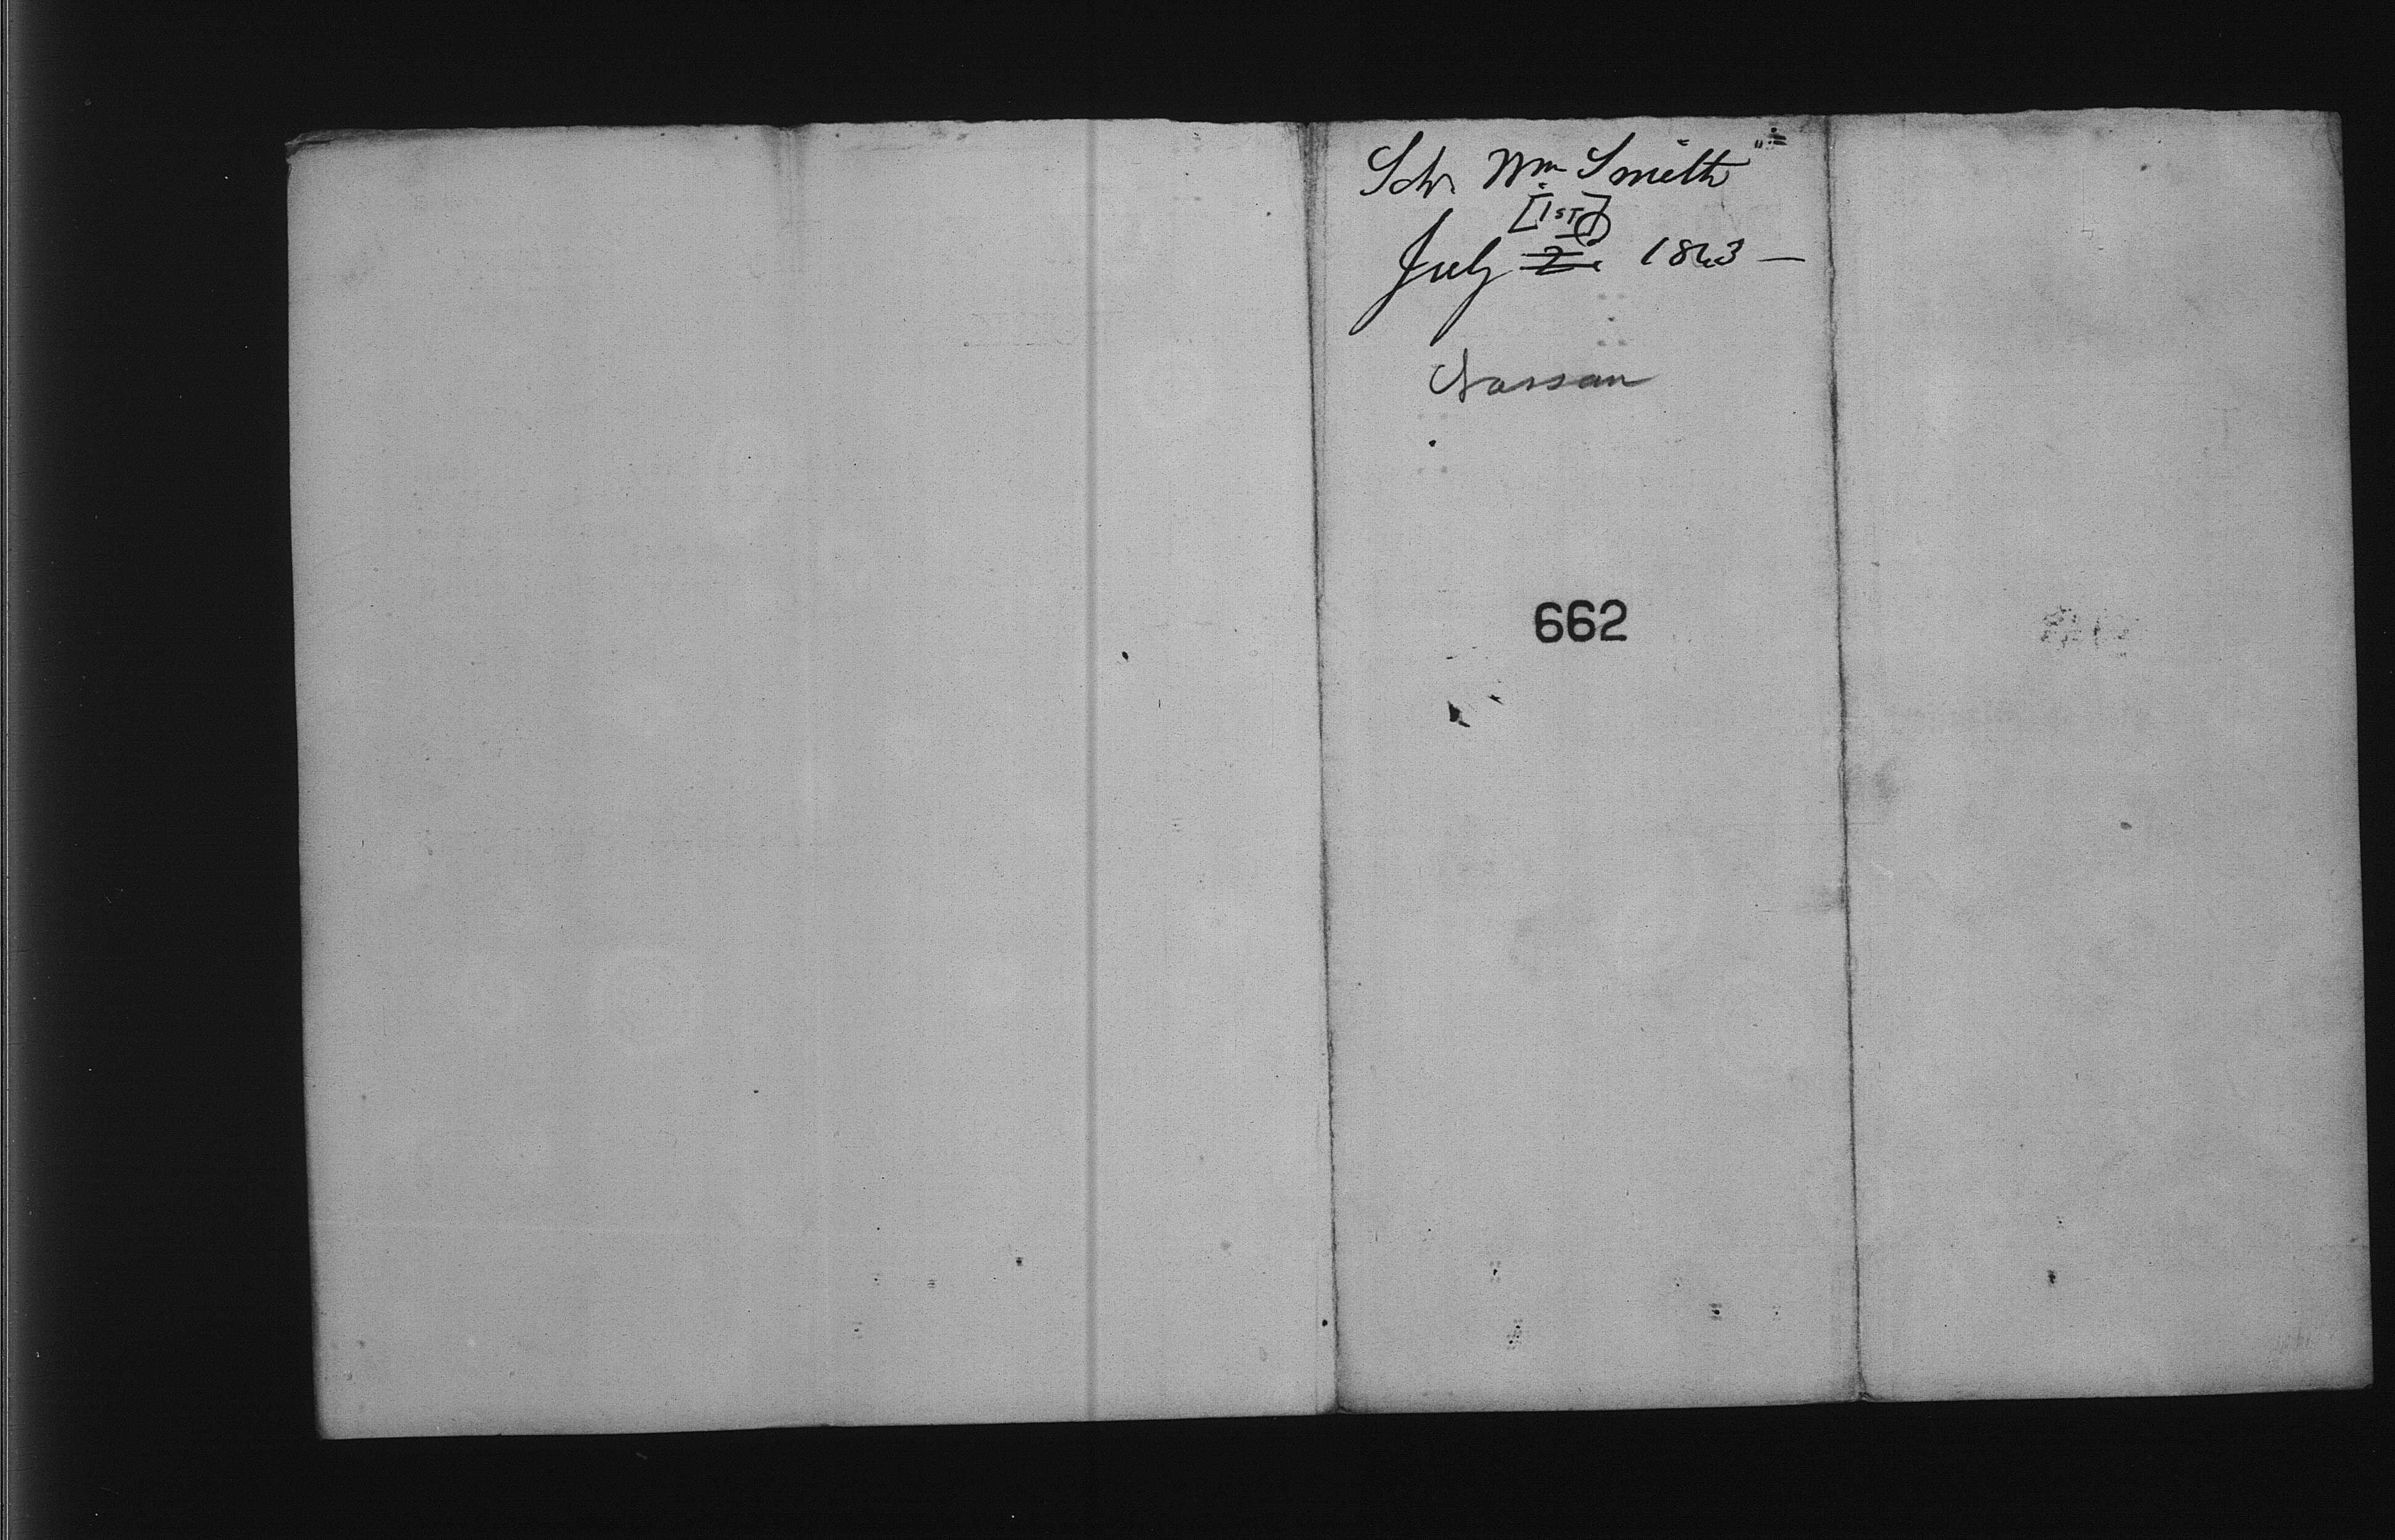 Sch. Wm Smith
[1ST]
July 2. 1863 —
Nassau
662